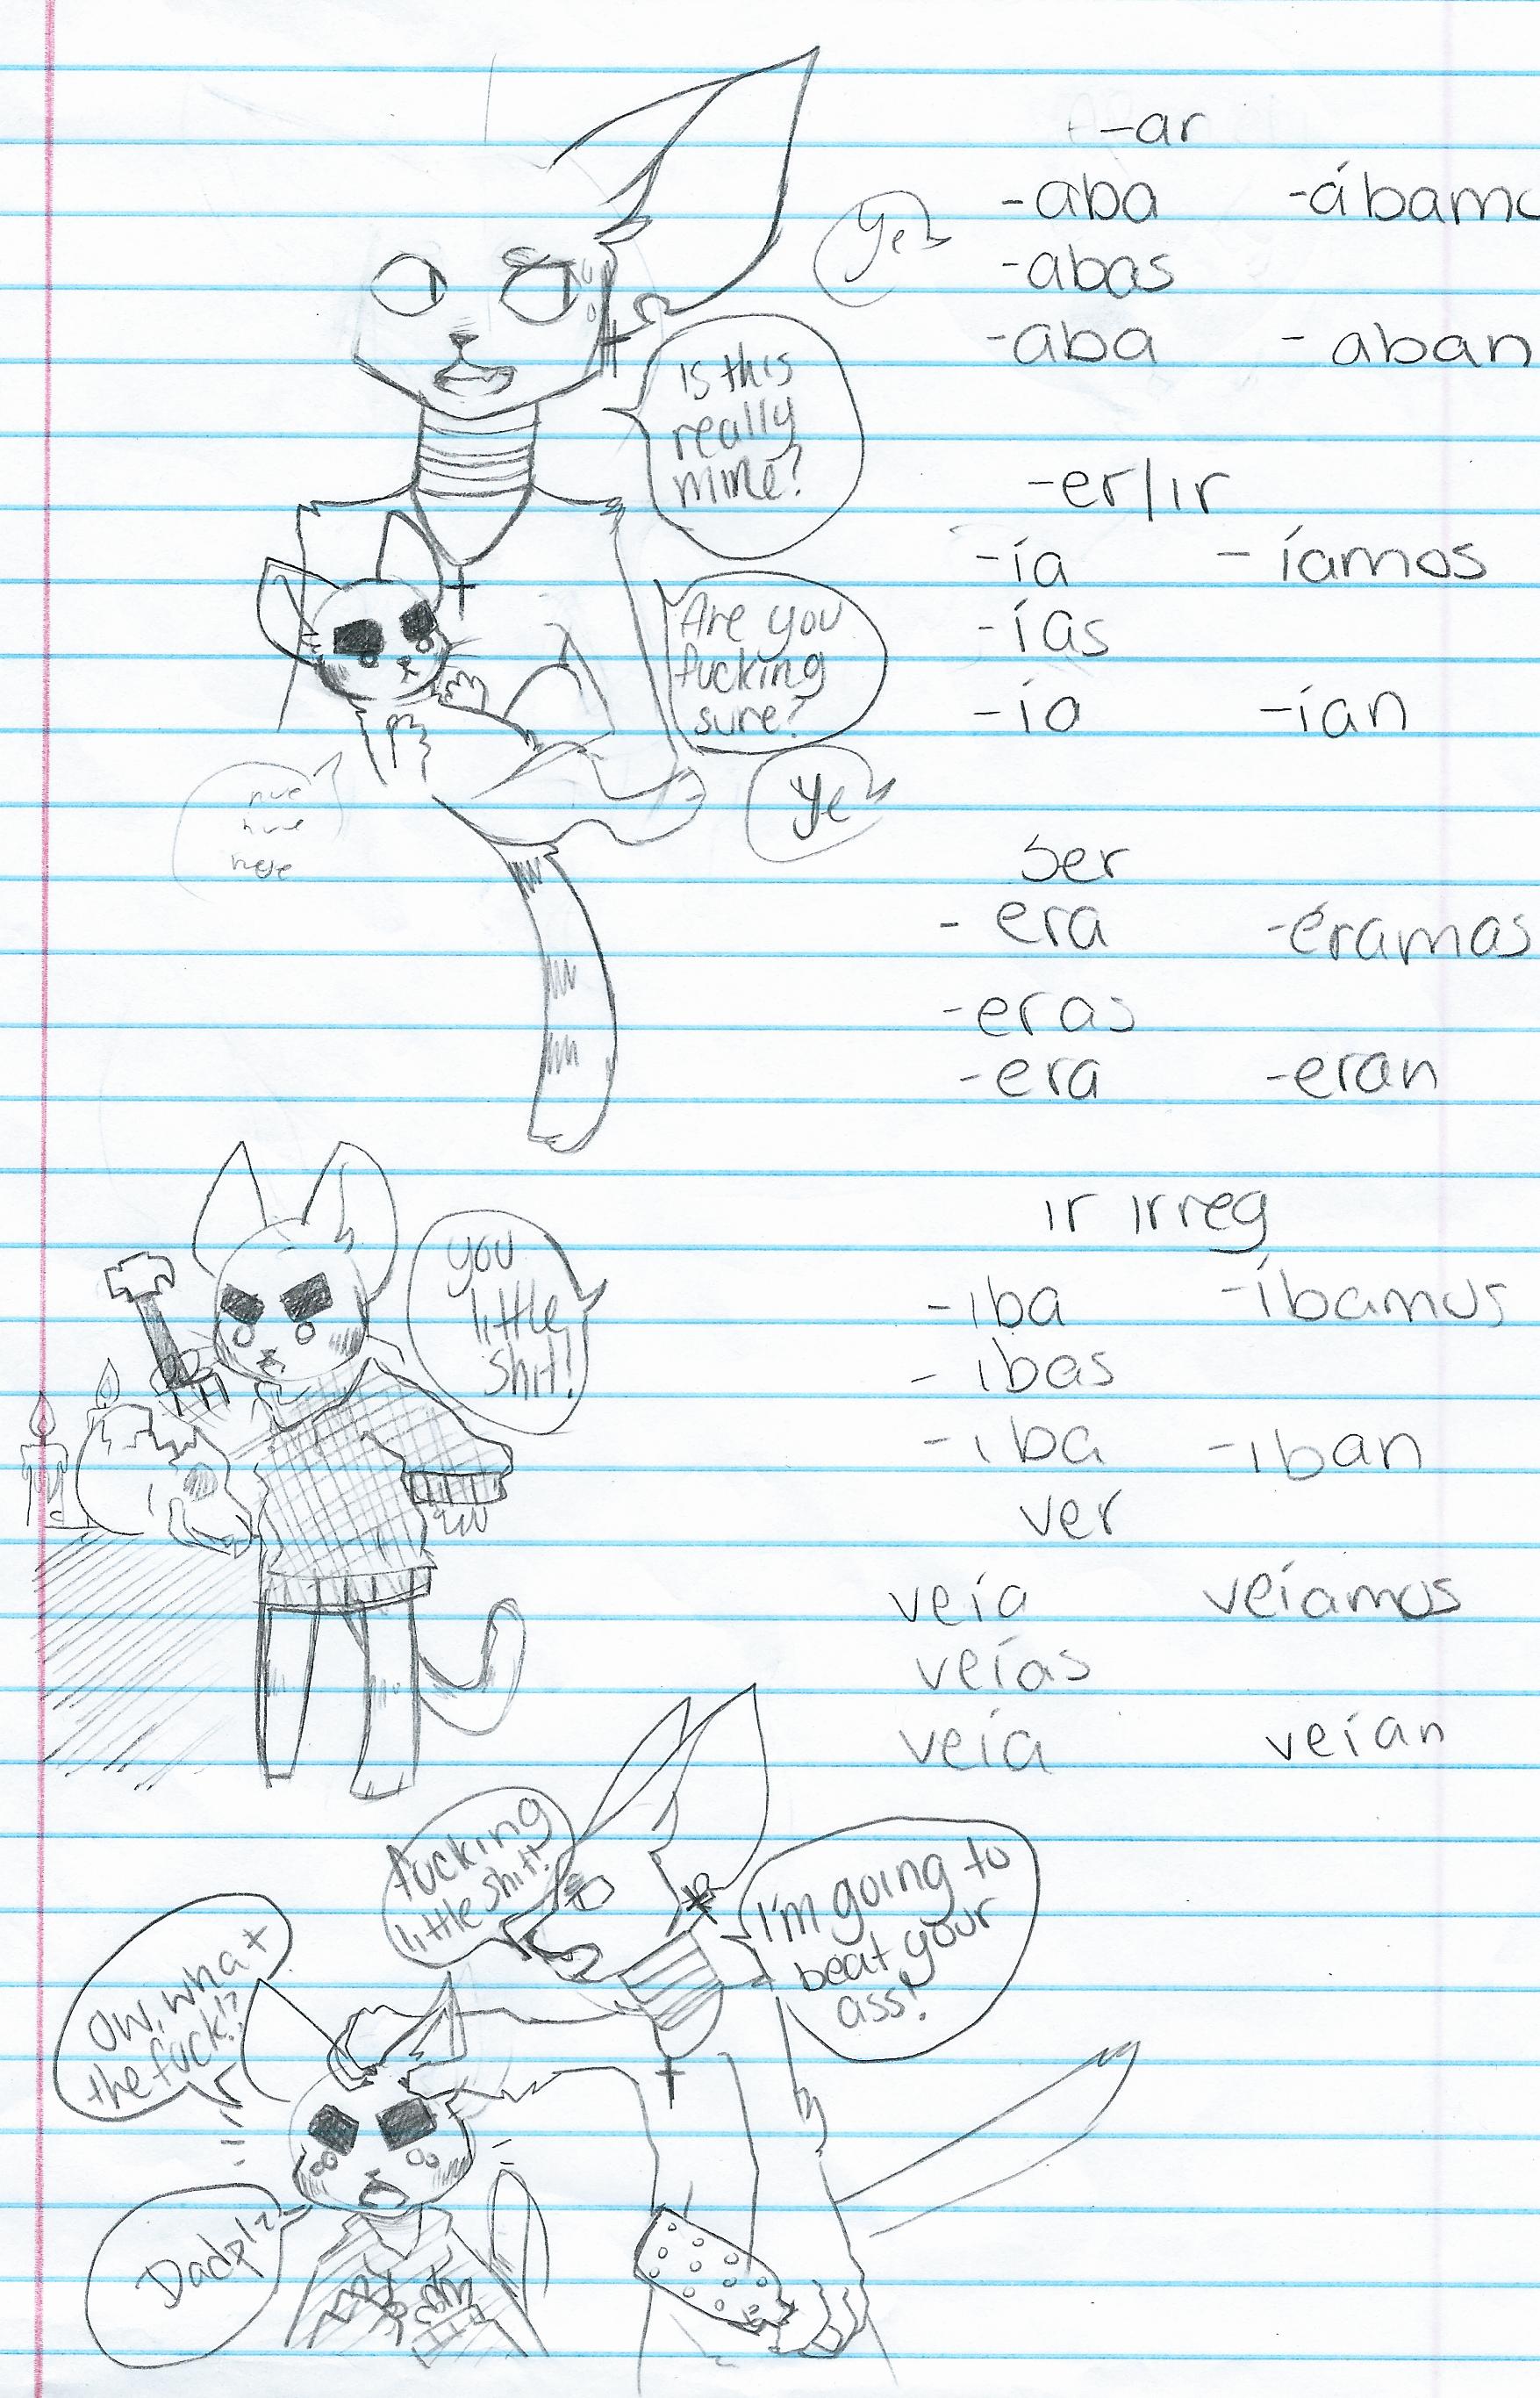 -ar
-aba -ábamo
-abas
-aba -aban
-er/ir
-ía -íamos
-ías
-ía -ían
ser
-era -éramos
-eras
-era -eran
ir irreg
-iba -íbamos
-ibas
-iba -iban
ver
veía veíamos
veías
veía veían
ye
is this
really
mine?
Are you
fucking
sure?
ye
you
little
shit!
fucking
little shit!
I'm going to
beat your
ass!
Ow, what
the fuck!?
Dad